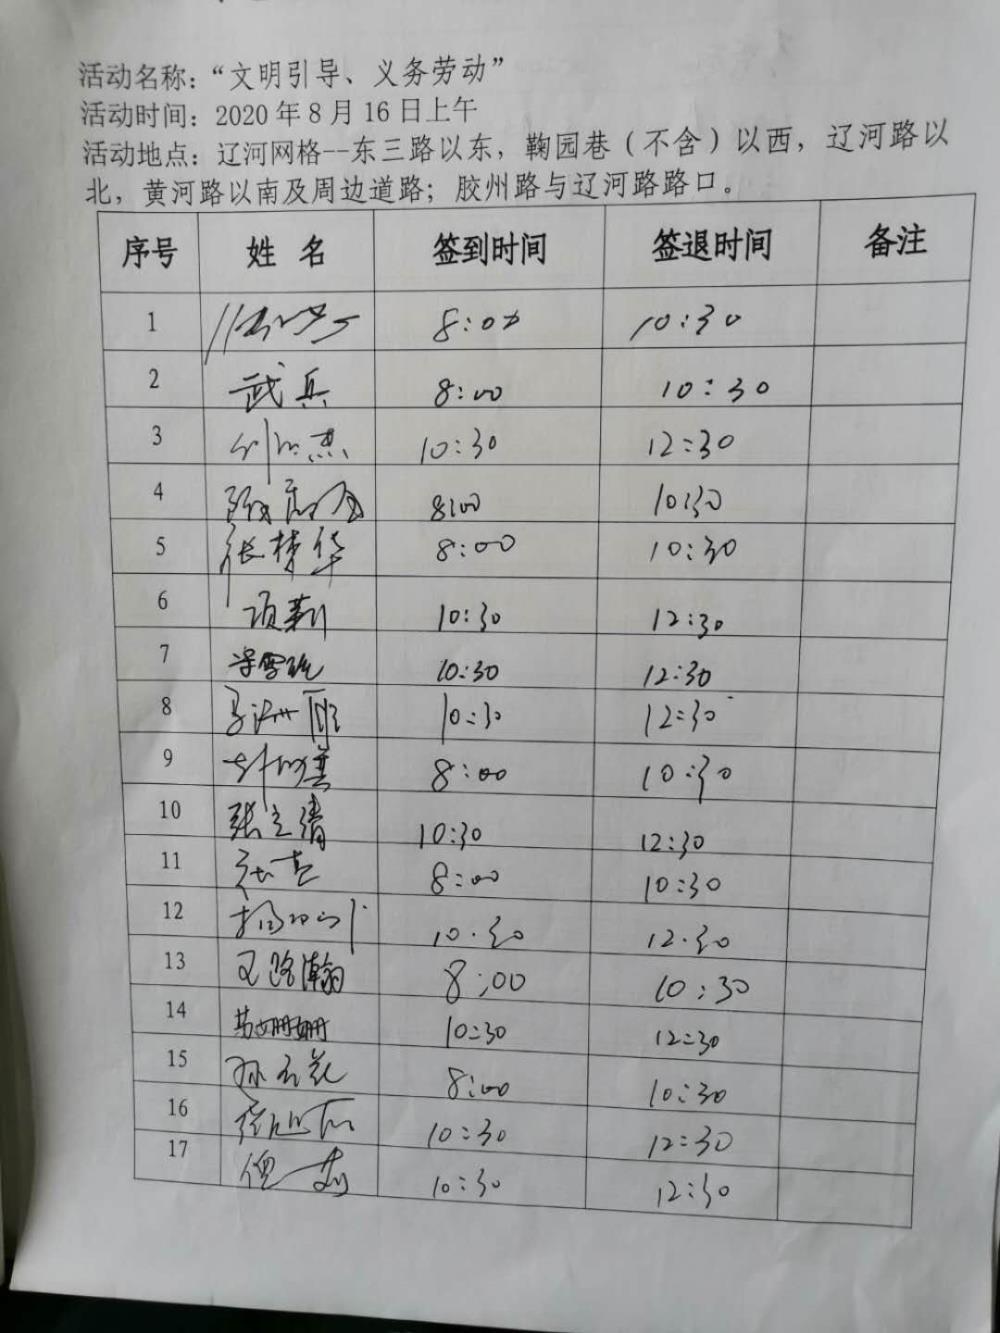 活动名称：“文明引导、义务劳动”
活动时间：2020年8月16日上午
活动地点：辽河网格--东三路以东，鞠园巷（不含）以西，辽河路以
北，黄河路以南及周边道路；胶州路与辽河路路口。
序号 姓名 签到时间 签退时间 备注
1 8:00 10:30
2 武兵 8:00 10:30
3 10:30 12:30
4 8:00 10:30
5 张梦华 8:00 10:30
6 项莉 10:30 12:30
7 10:30 12:30
8 10:30 12:30
9 8:00 10:30
10 张立清 10:30 12:30
11 8:00 10:30
12 10:30 12:30
13 王路瀚 8:00 10:30
14 10:30 12:30
15 8:00 10:30
16 10:30 12:30
17 10:30 12:30